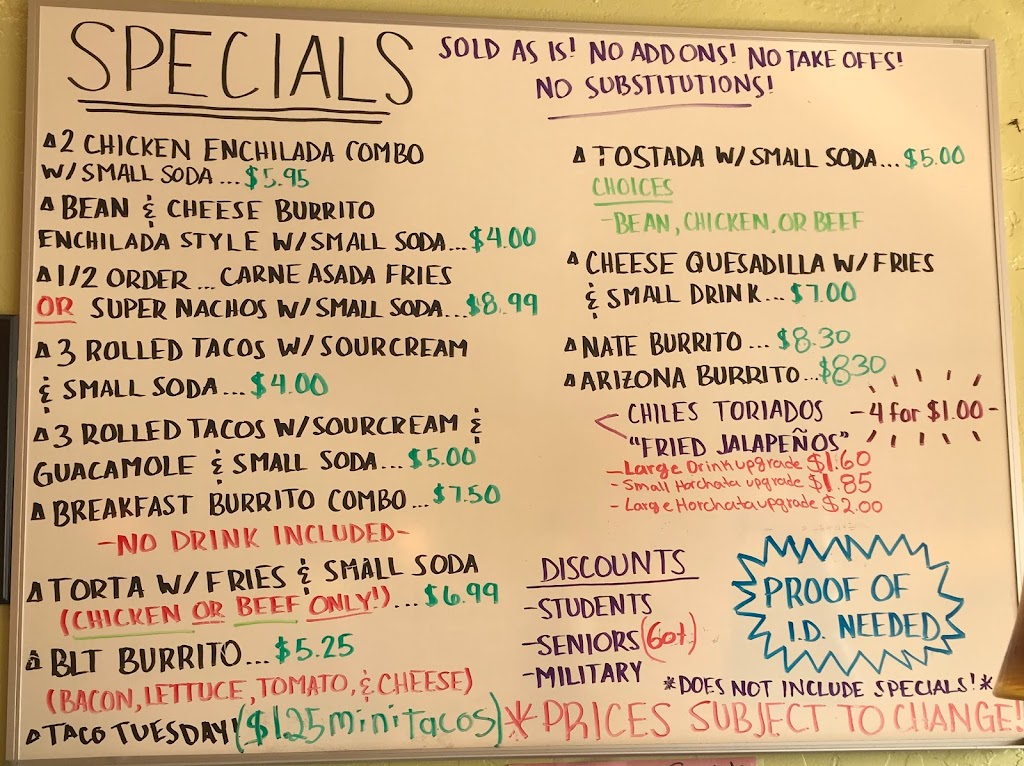 SPECIALS
SOLD AS IS! NO ADD ONS! NO TAKE OFFS!
NO SUBSTITUTIONS!
2 CHICKEN ENCHILADA COMBO
W/ SMALL SODA ... $5.95
BEAN & CHEESE BURRITO
ENCHILADA STYLE W/ SMALL SODA... $4.00
1/2 ORDER ... CARNE ASADA FRIES
OR SUPER NACHOS W/ SMALL SODA... $8.99
3 ROLLED TACOS W/ SOURCREAM
& SMALL SODA ... $4.00
3 ROLLED TACOS W/ SOURCREAM &
GUACAMOLE & SMALL SODA... $5.00
BREAKFAST BURRITO COMBO ... $7.50
-NO DRINK INCLUDED-
TORTA W/ FRIES & SMALL SODA
(CHICKEN OR BEEF ONLY!)... $6.99
BLT BURRITO... $5.25
(BACON, LETTUCE, TOMATO, & CHEESE)
TACO TUESDAY! ($1.25 mini tacos)
TOSTADA W/ SMALL SODA... $5.00
CHOICES
-BEAN, CHICKEN, OR BEEF
CHEESE QUESADILLA W/ FRIES
& SMALL DRINK... $7.00
NATE BURRITO ... $8.30
ARIZONA BURRITO... $830
CHILES TORIADOS - 4 for $1.00 -
"FRIED JALAPEÑOS"
- Large Drink upgrade $1.60
- Small Horchata upgrade $1.85
- Large Horchata upgrade $2.00
DISCOUNTS
-STUDENTS
-SENIORS (60+)
-MILITARY
PROOF OF
I.D. NEEDED
*DOES NOT INCLUDE SPECIALS!*
*PRICES SUBJECT TO CHANGE!